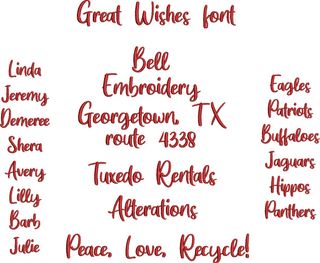 Great Wishes font
Bell
Embroidery
Georgetown, TX
route 4338
Tuxedo Rentals
Alterations
Peace, Love, Recycle!
Linda
Jeremy
Demeree
Shera
Avery
Lilly
Barb
Julie
Eagles
Patriots
Buffaloes
Jaguars
Hippos
Panthers